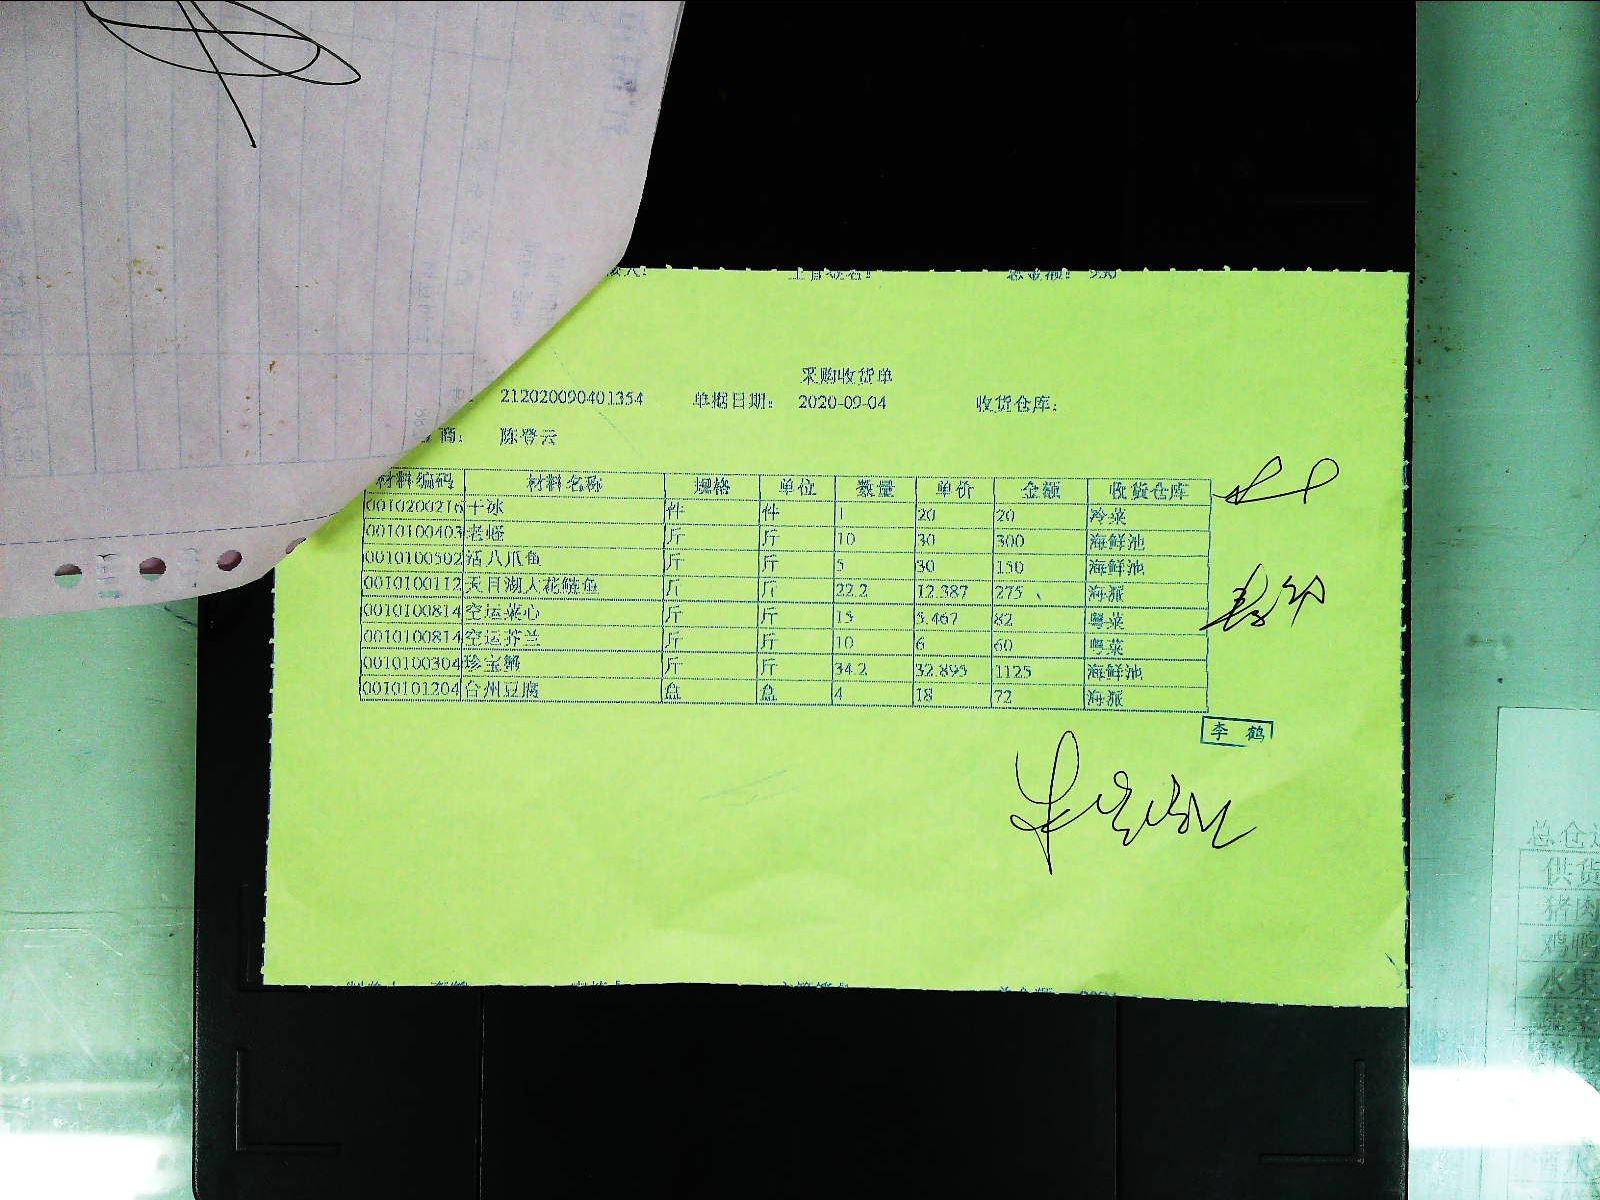 采购收货单
212020090401354 单据日期： 2020-09-04 收货仓库：
商： 陈登云
材料编码 材料名称 规格 单位 数量 单价 金额 收货仓库
0010200216 干冰 件 件 1 20 20 冷菜
0010100403 老蛏 斤 斤 10 30 300 海鲜池
0010100502 活八爪鱼 斤 斤 5 30 150 海鲜池
0010100112 天目湖大花鲢鱼 斤 斤 22.2 12.387 275 海派
0010100814 空运菜心 斤 斤 15 5.467 82 粤菜
0010100814 空运芥兰 斤 斤 10 6 60 粤菜
0010100304 珍宝蟹 斤 斤 34.2 32.895 1125 海鲜池
0010101204 台州豆腐 盒 盒 4 18 72 海派
李 鹤
总仓
供货
猪肉
鸡鸭
水果
蔬菜